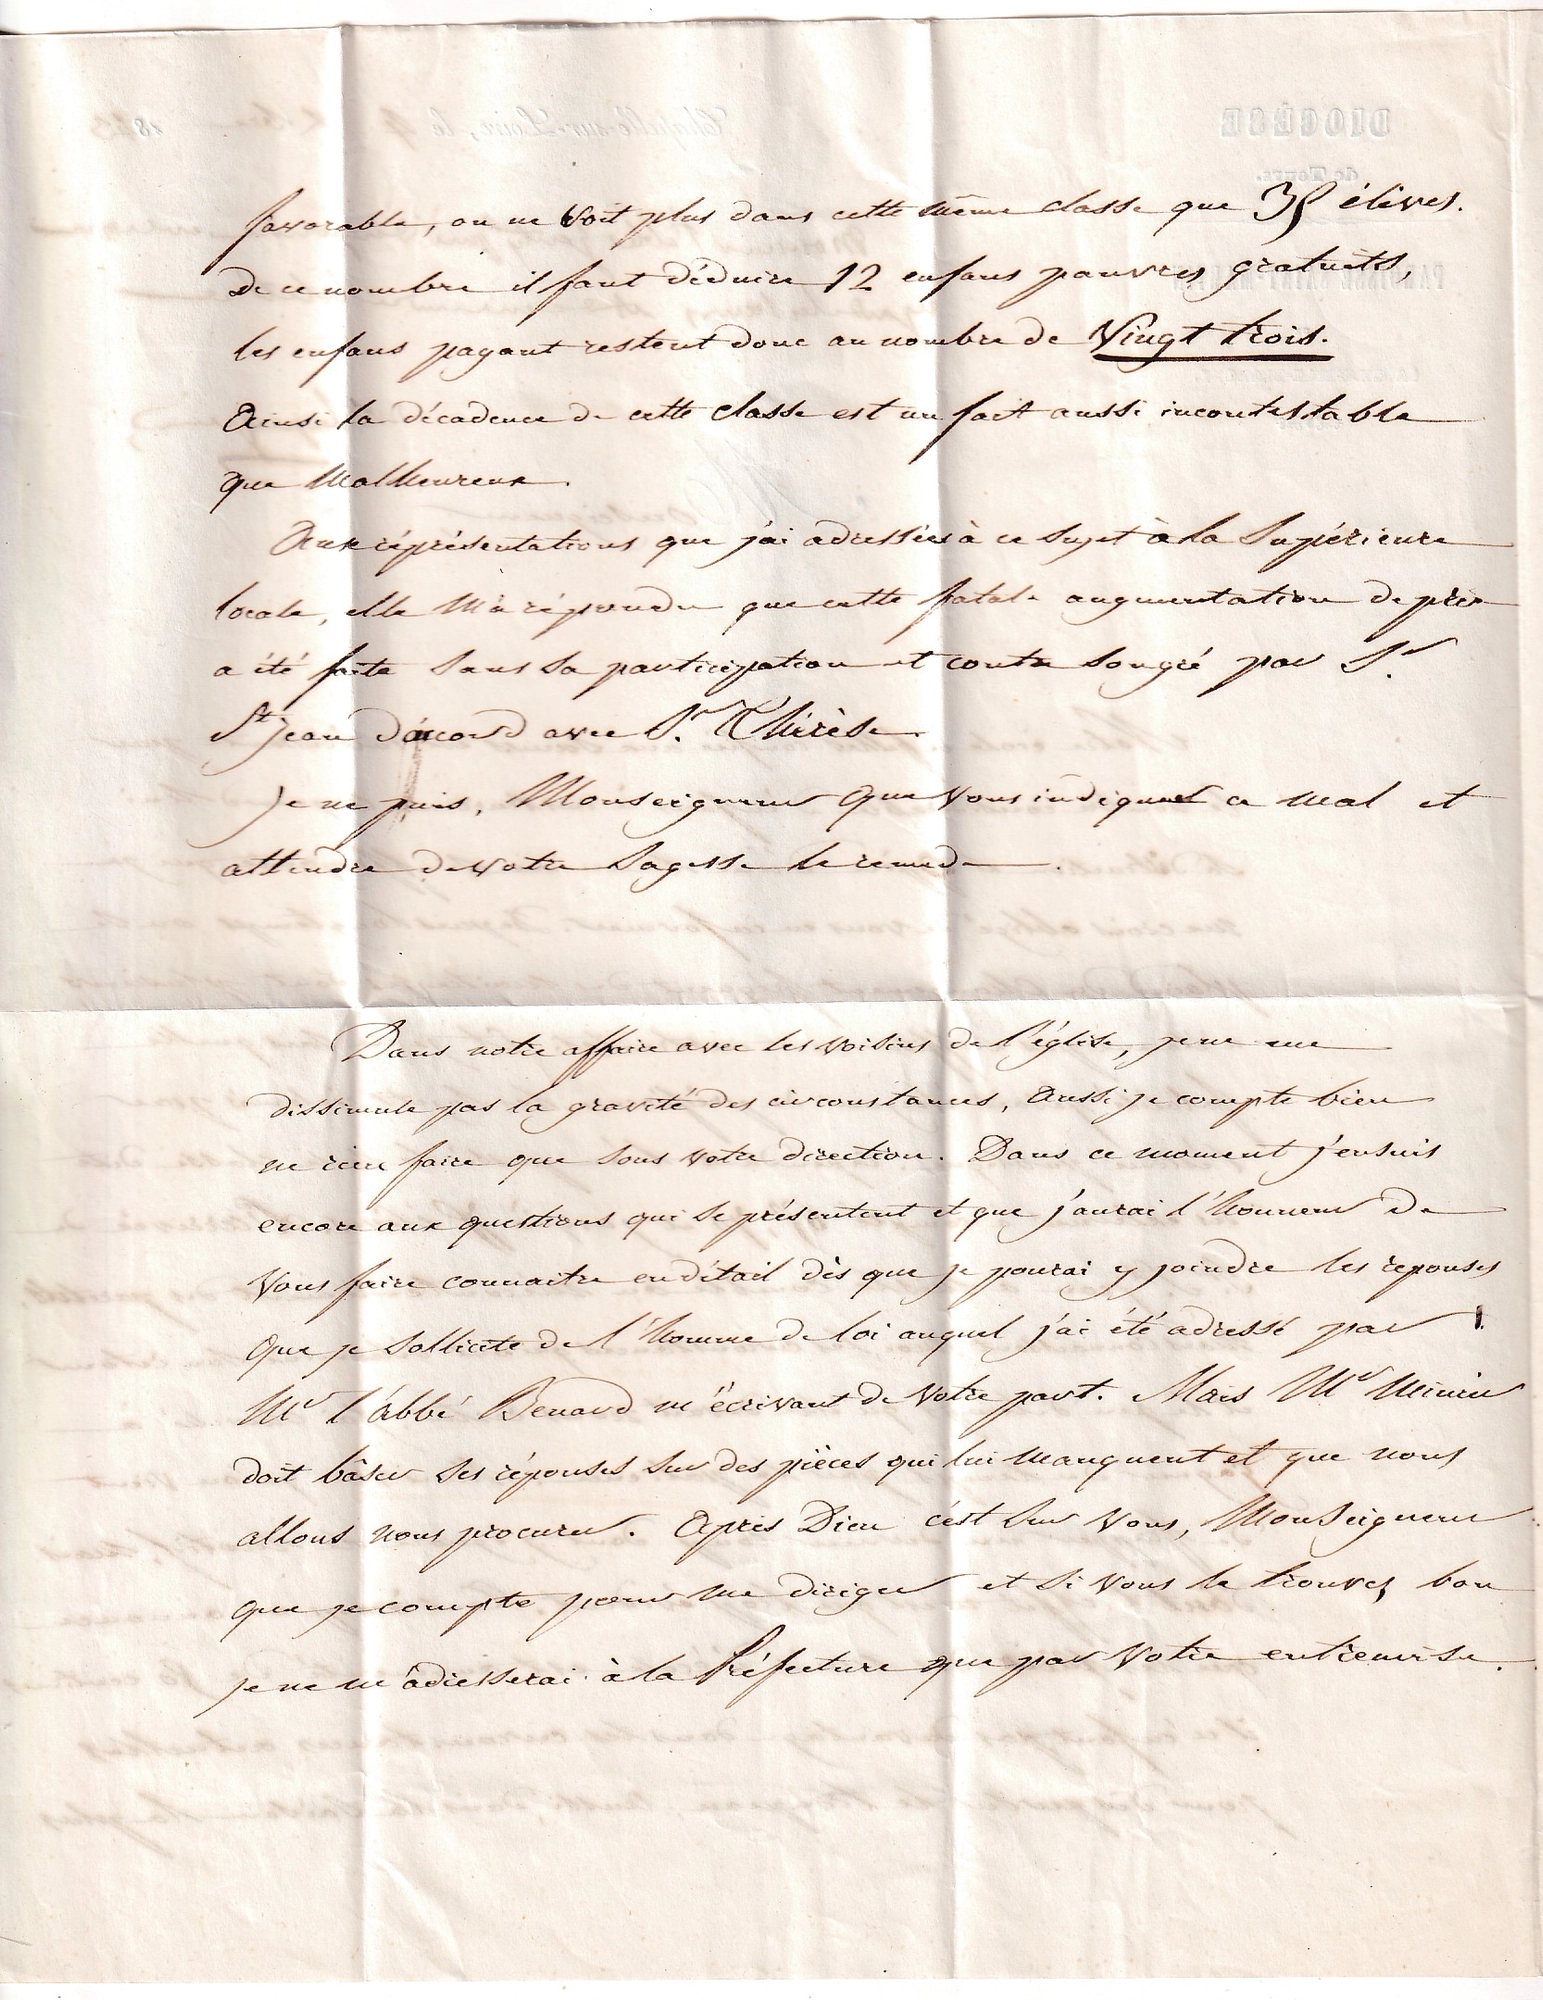 favorable, on ne voit plus dans cette même classe que 35 élèves.
De ce nombre il faut déduire 12 enfans pauvres gratuits,
les enfans payant restent donc au nombre de Vingt trois.
Ainsi la décadence de cette classe est un fait aussi incontestable
que malheureux.
Aux réprésentations que j'ai adressées à ce sujet à la Supérieure
locale, elle m'a répondu que cette fatale augmentation de prix
a été faite sans sa participation et contre son gré par Sr
St Jean d'acord avec Sr Thérèse.
Je ne puis, Monseigneur que vous indiquer ce mal et
attendre de votre sagesse le remede.
Dans notre affaire avec les voisins de l'église, je ne me
dissimule pas la gravité des circonstances, Aussi je compte bien
ne rien faire que sous votre direction. Dans ce moment j'en suis
encore aux questions qui se présentent et que j'aurai l'honneur de
vous faire connaitre en détail dès que je pourai y joindre les reponses
que je sollicite de l'homme de loi auquel j'ai été adressé par
Mr l'abbé Benard m'écrivant de votre part. Mais Mr
doit bâser ses réponses sur des pièces qui lui manquent et que nous
allons nous procurer. Après Dieu c'est sur vous, Monseigneur
que je compte pour me diriger et si vous le trouvez bon
je ne m'adresserai à la Préfecture que par votre entremise.
DIOCÈSE
de Tours.
Chapelle-sur-Loire, le
18